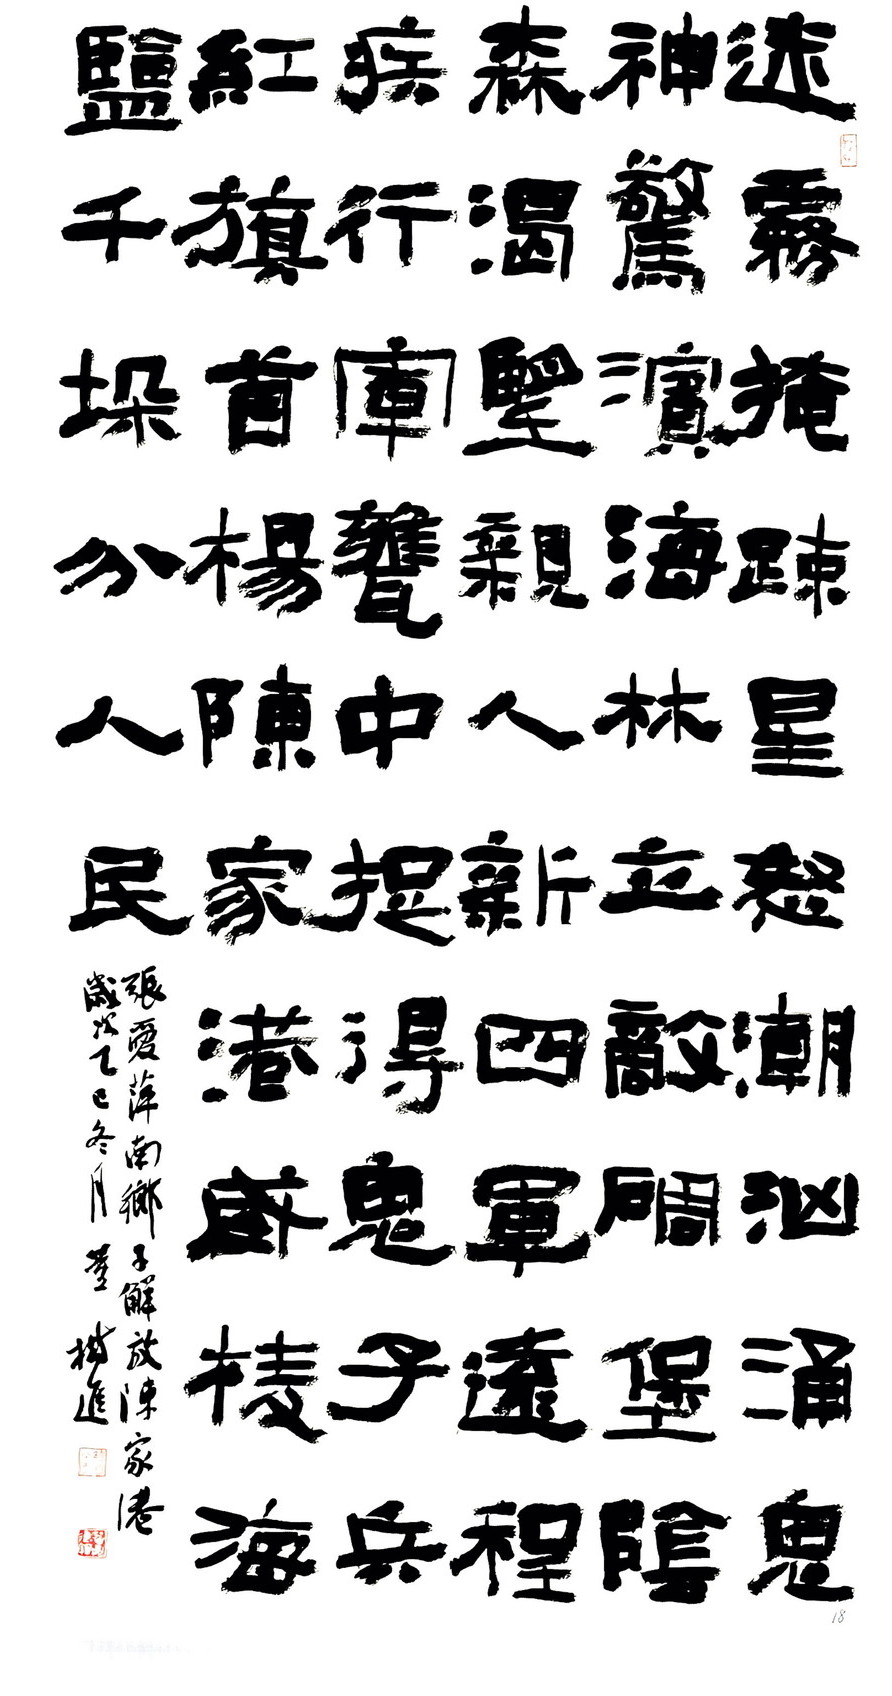 迷霧掩疎星怒潮汹涌鬼
神驚濱海林立敵碉堡陰
森渴望親人新四軍遠程
疾行軍甕中捉得鬼子兵
紅旗首楊陳家港威棱海
鹽千垛分人民
張愛萍南鄉子解放陳家港
歲次乙巳冬月 董進
18